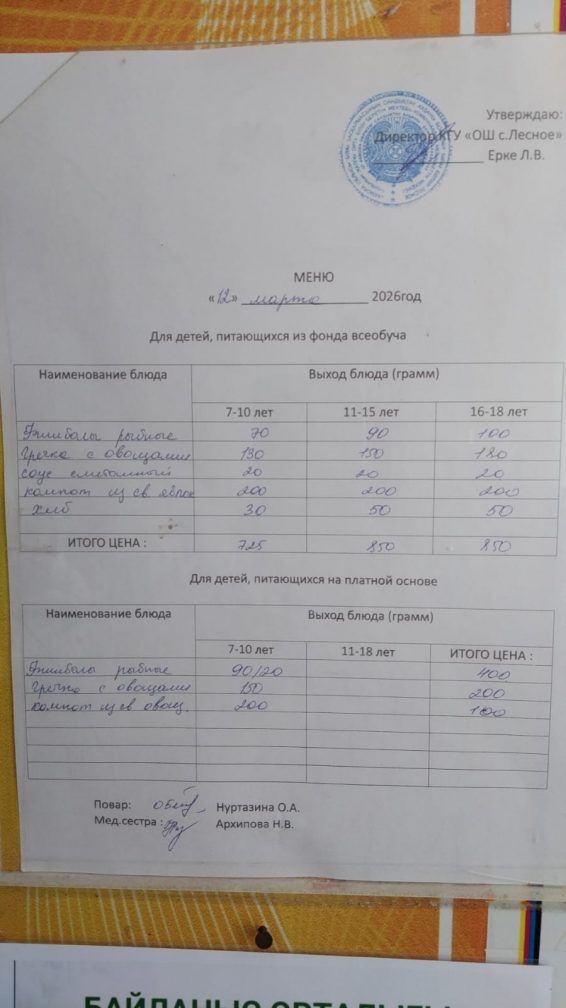 Утверждаю:
Директор КГУ «ОШ с.Лесное»
Ерке Л.В.
МЕНЮ
«12» марта 2026год
Для детей, питающихся из фонда всеобуча
Наименование блюда Выход блюда (грамм)
7-10 лет 11-15 лет 16-18 лет
рыбные 70 90 100
Гречка с овощами 130 150 180
соус сметанный 20 20 20
компот из св яблок 200 200 200
хлеб 30 50 50
ИТОГО ЦЕНА : 725 850 850
Для детей, питающихся на платной основе
Наименование блюда Выход блюда (грамм)
7-10 лет 11-18 лет ИТОГО ЦЕНА :
рыбные 90/20 400
гречка с овощами 150 200
компот из св овощ. 200 100
Повар: Нуртазина О.А.
Мед.сестра : Архипова Н.В.
БАЙЛАНЫС ОРТАЛЫҒЫ